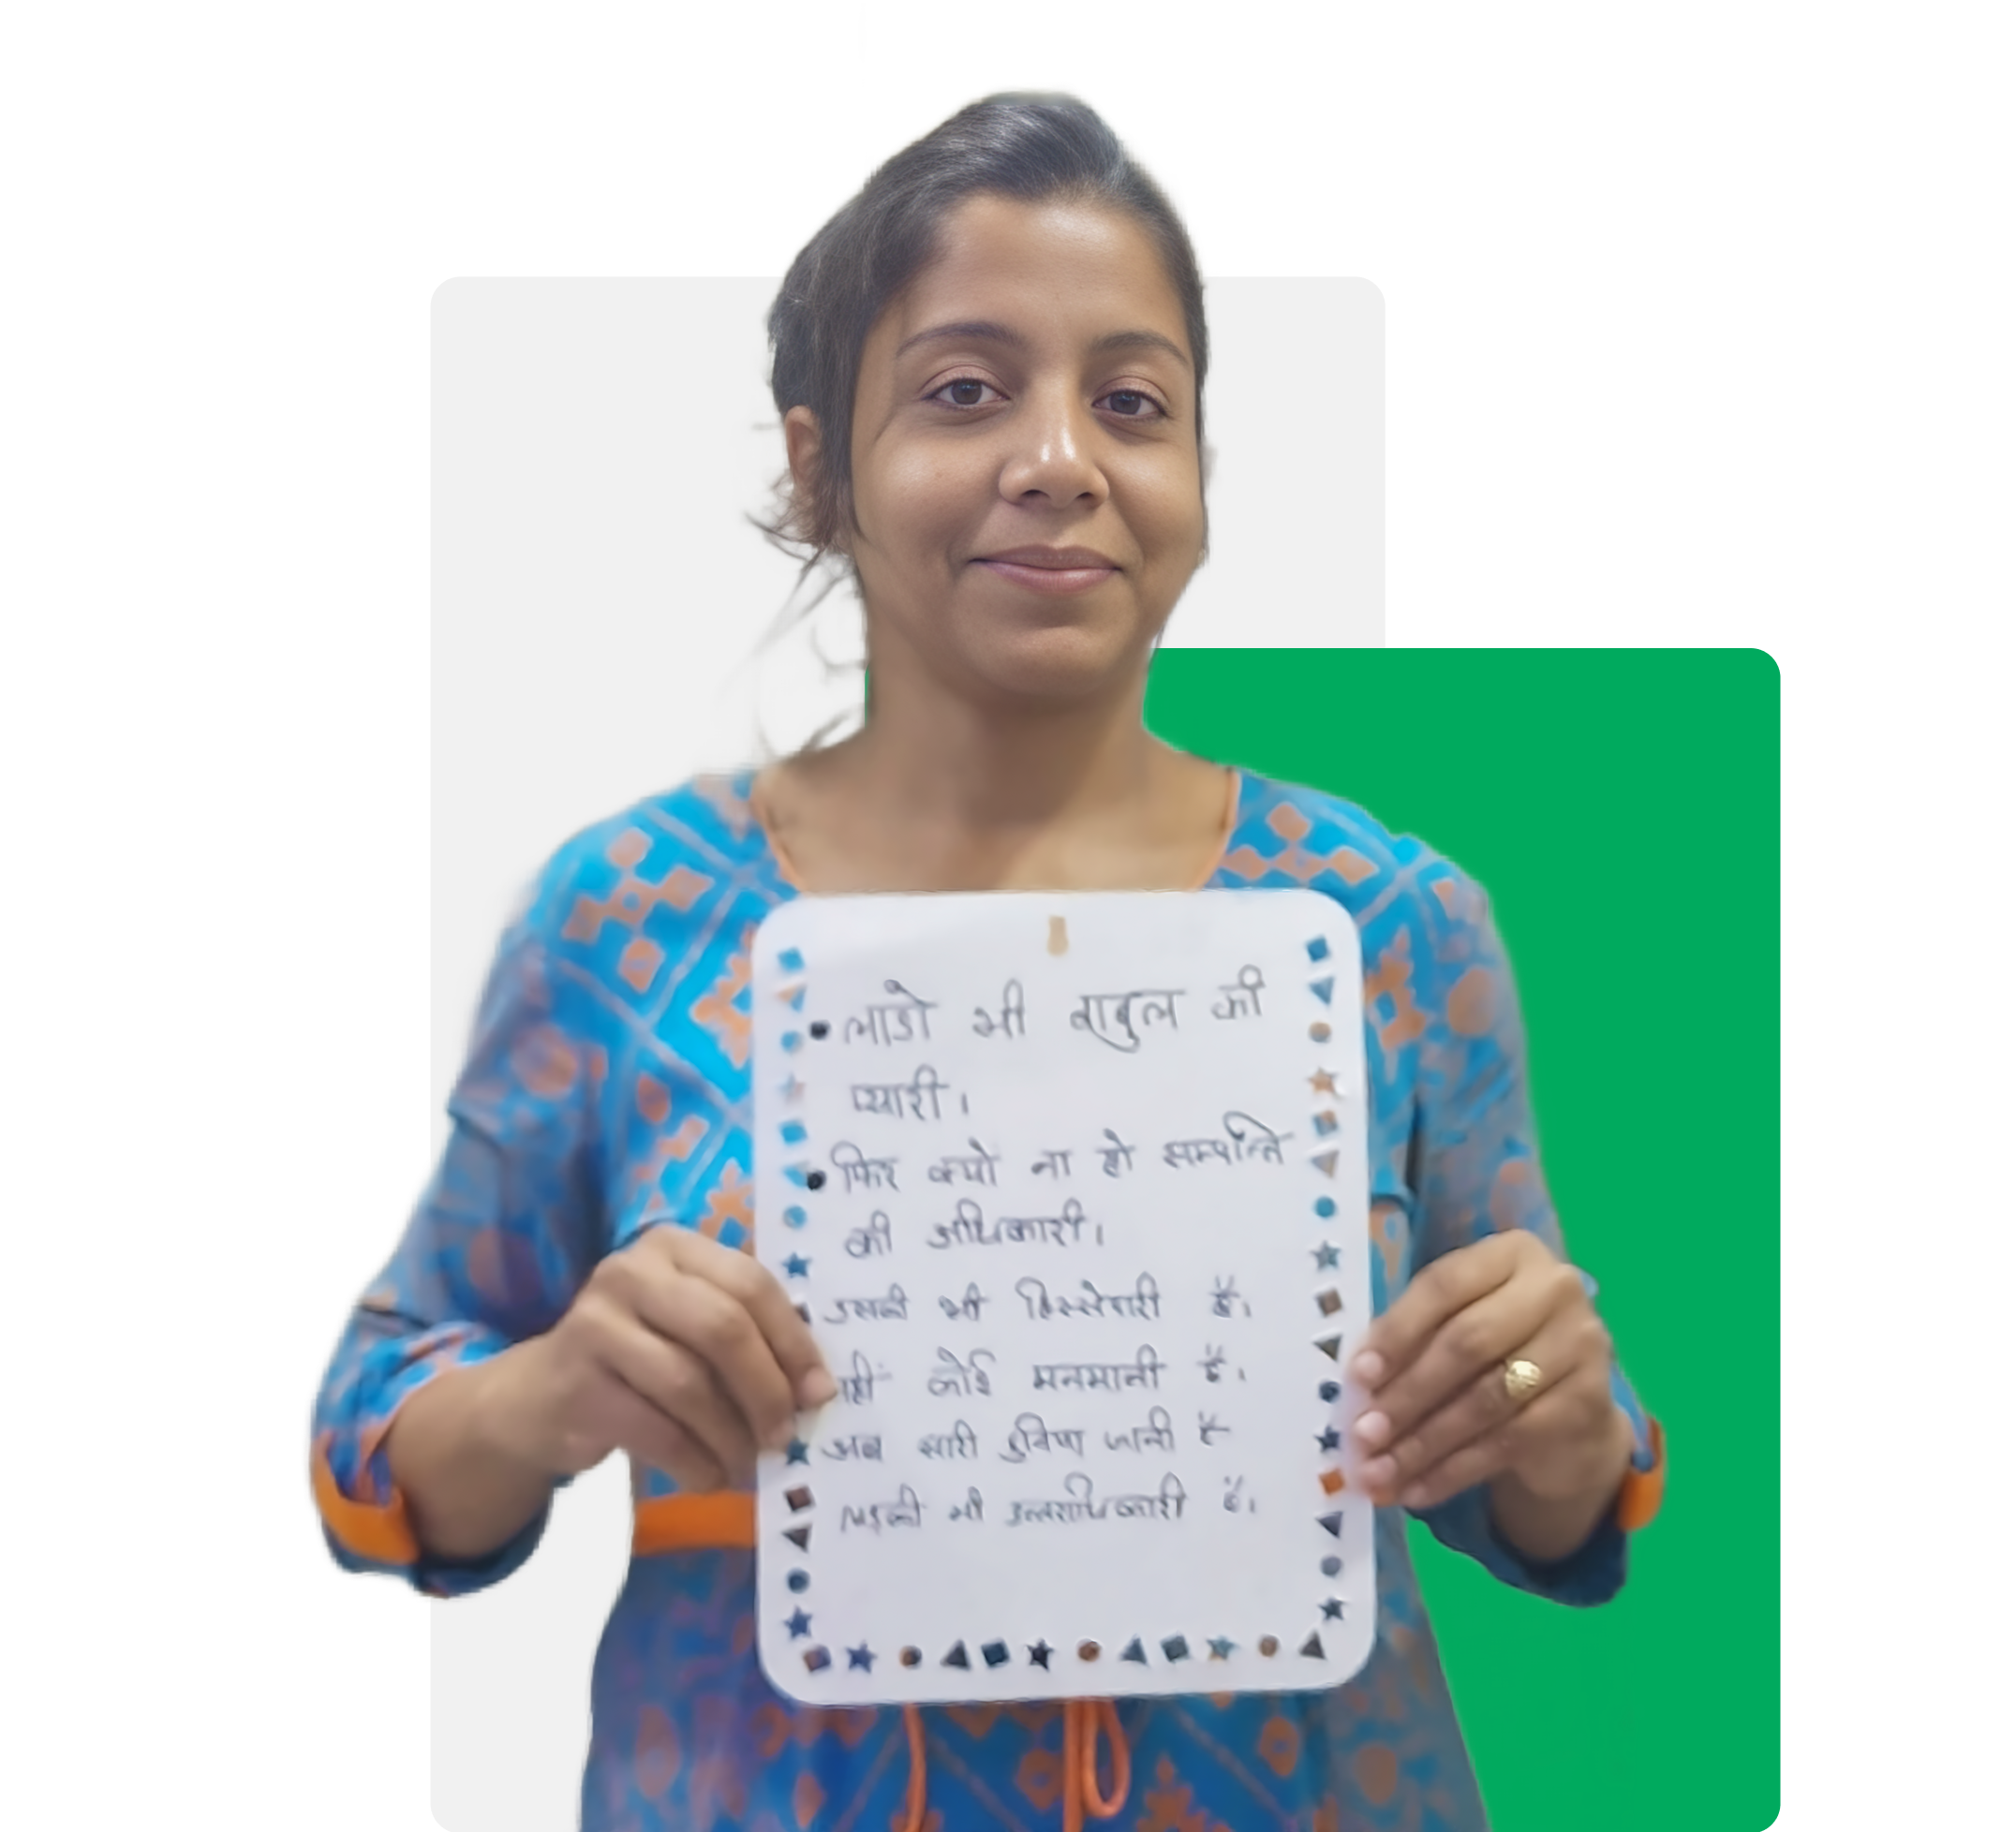 • लाडो भी बाबुल की
प्यारी।
• फिर क्यो ना हो सम्पत्ति
की अधिकारी।
उसकी भी हिस्सेदारी हैं।
नहीं कोई मनमानी हैं।
अब सारी दुनिया जानी हैं
लड़की भी उत्तराधिकारी हैं।